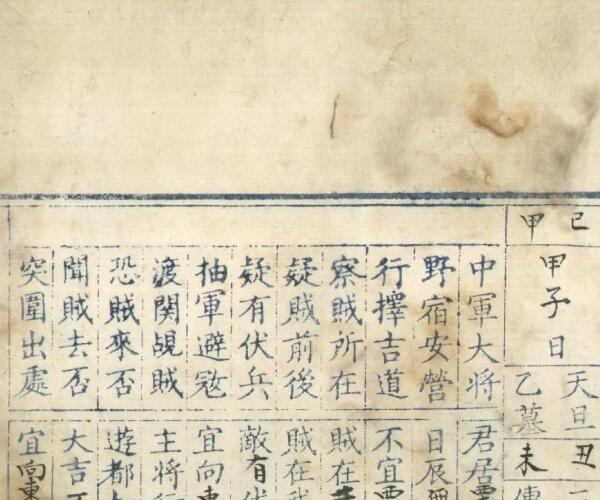 己
甲
甲子日
天旦
乙墓
丑
未
中軍大将
野宿安營
行擇吉道
察賊所在
疑賊前後
疑有伏兵
抽軍避寇
渡関覘賊
恐賊來否
聞賊去否
突圍出處
君居
日辰
不宜
賊在
賊在
敵有
宜向東
主将
遊都
大吉
宜向東